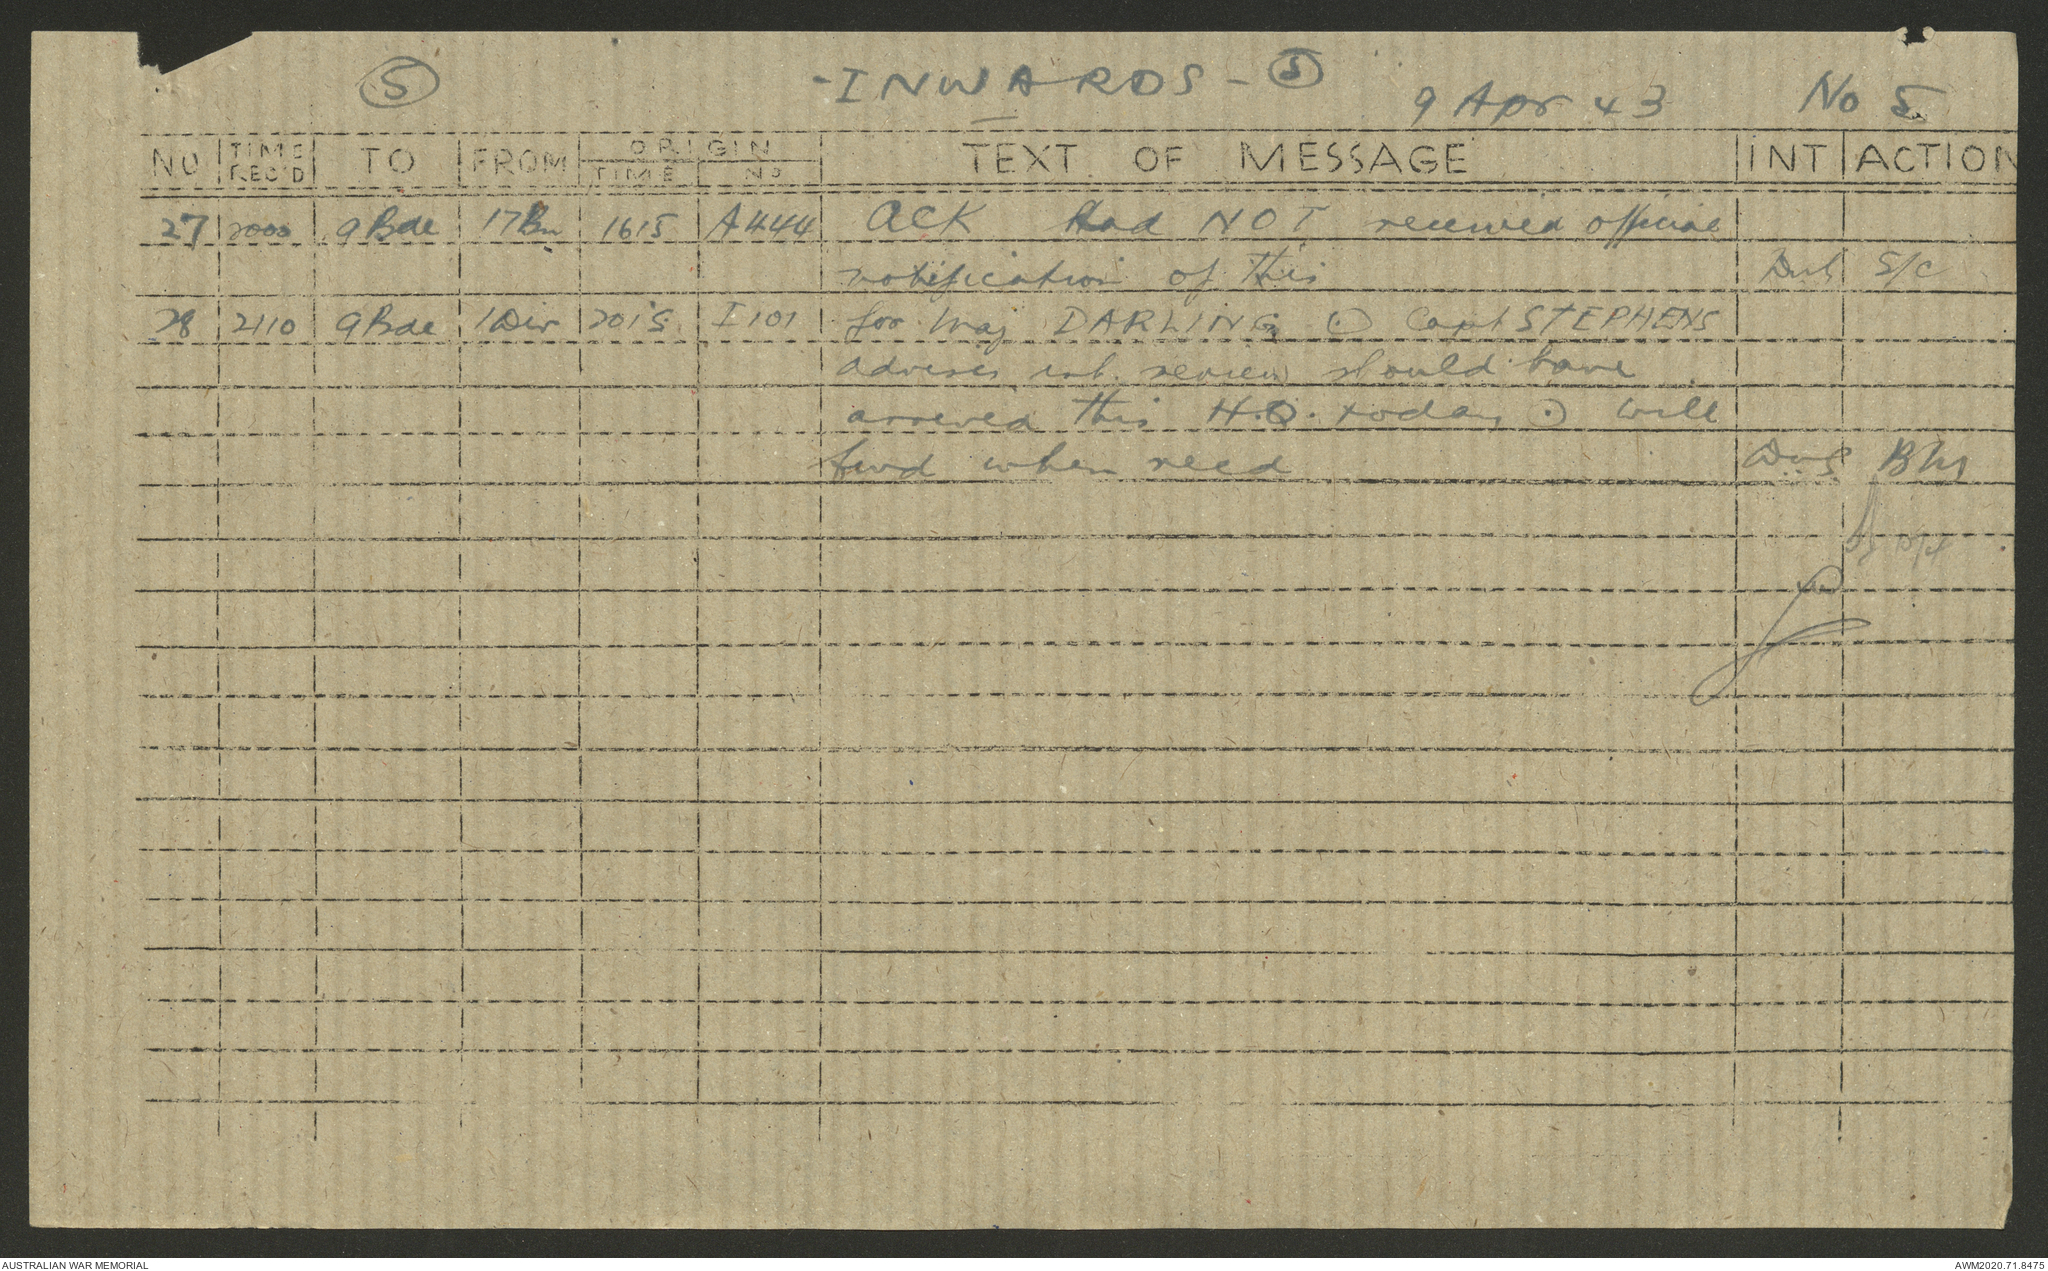 5 -INWARDS- 5
9 Apr 43 No 5
NO TIME REC'D TO FROM ORIGIN TIME NO TEXT OF MESSAGE INT ACTION
27 2000 9 Bde 17 Bn 1615 A444 ACK Had NOT received official
notification of this S/C
28 2110 9 Bde 1 Div 2015 I 101 for Maj DARLING ⊙ Capt STEPHENS
advises int review should have
arrived this H.Q. today ⊙ will
fwd when recd BM
10/4
AUSTRALIAN WAR MEMORIAL AWM2020.71.8475